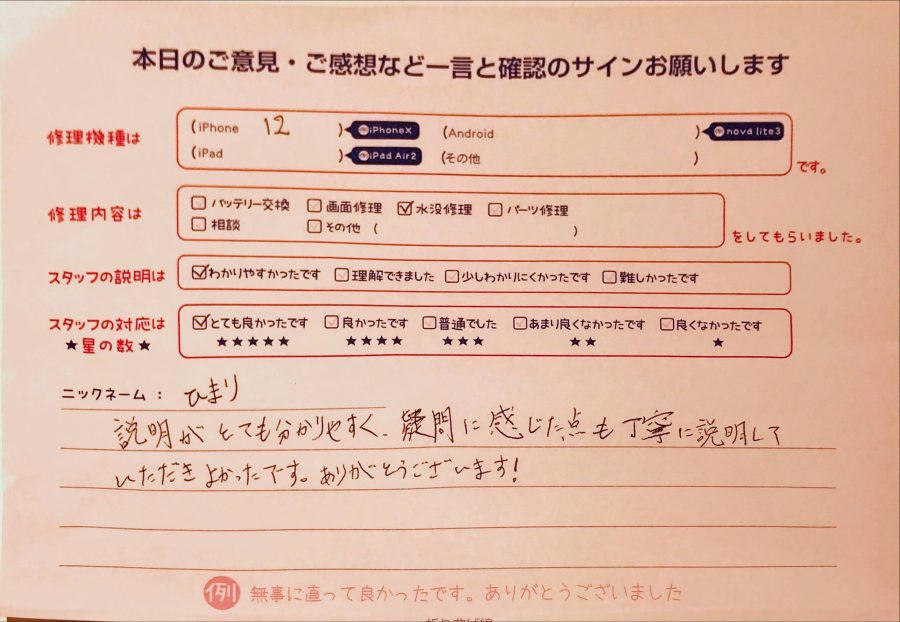 本日のご意見・ご感想など一言と確認のサインお願いします
修理機種は
(iPhone 12 ) 例iPhoneX (Android ) 例nova lite3
(iPad ) 例iPad Air2 (その他 ) です。
修理内容は
バッテリー交換 画面修理 水没修理 パーツ修理
相談 その他 ( ) をしてもらいました。
スタッフの説明は わかりやすかったです 理解できました 少しわかりにくかったです 難しかったです
スタッフの対応は とても良かったです 良かったです 普通でした あまり良くなかったです 良くなかったです
★星の数★ ★★★★★ ★★★★ ★★★ ★★ ★
ニックネーム: ひまり
説明がとても分かりやすく、疑問に感じた点も丁寧に説明して
いただきよかったです。ありがとうございます!
例 無事に直って良かったです。ありがとうございました